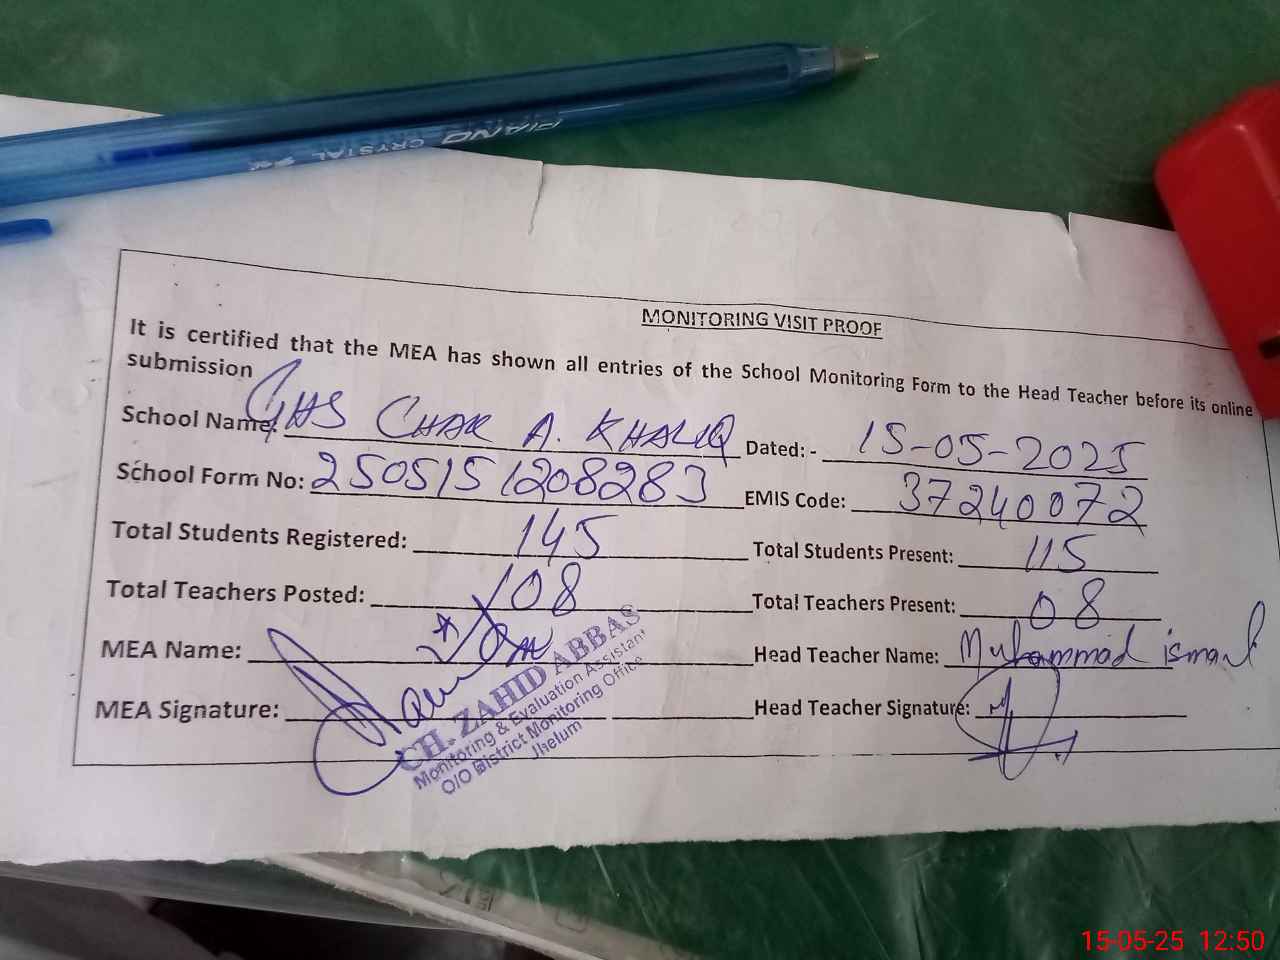 PIANO CRYSTAL
MONITORING VISIT PROOF
It is certified that the MEA has shown all entries of the School Monitoring Form to the Head Teacher before its online
submission
School Name: GHS CHAK A. KHALIQ Dated: - 15-05-2025
School Form No: 2505151208283 EMIS Code: 37240072
Total Students Registered: 145 Total Students Present: 115
Total Teachers Posted: 08 Total Teachers Present: 08
MEA Name: Head Teacher Name: Muhammad ismail
MEA Signature: Head Teacher Signature:
CH. ZAHID ABBAS
Monitoring & Evaluation Assistant
O/O District Monitoring Office
Jhelum
15-05-25 12:50